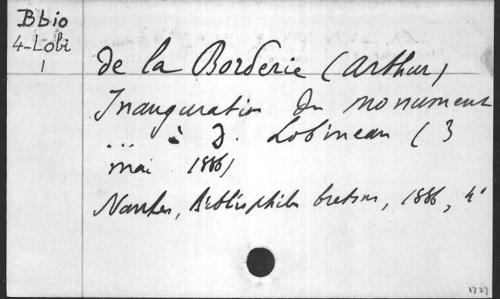 Bbio
4-Lobi
1
de la Borderie (Arthur)
Inauguration du monument
... à D. Lobineau (3
mai 1886)
Nantes, Bibliophiles bretons, 1886, 4°
1727